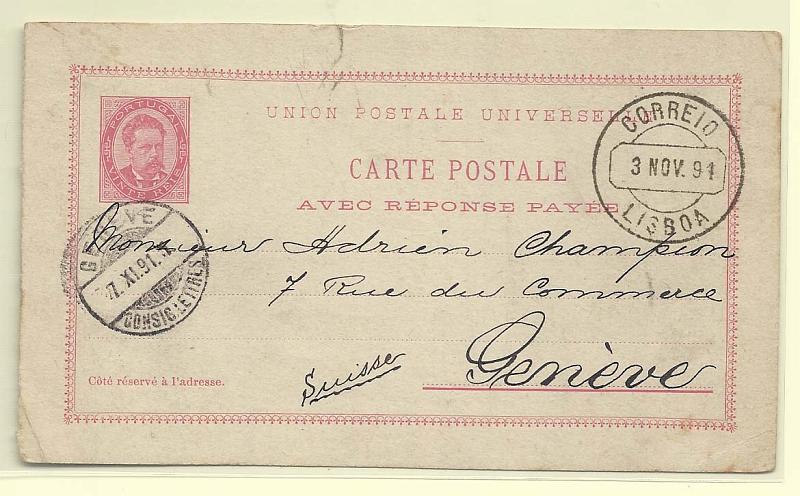 UNION POSTALE UNIVERSELLE
CARTE POSTALE
AVEC RÉPONSE PAYÉE
PORTUGAL
VINTE REIS
CORREIO
3 NOV. 91
LISBOA
GENÈVE
7. XI. 91
CONSIG. LETTRES
Monsieur Adrien Champion
7 Rue du Commerce
Genève
Suisse
Côté réservé à l'adresse.